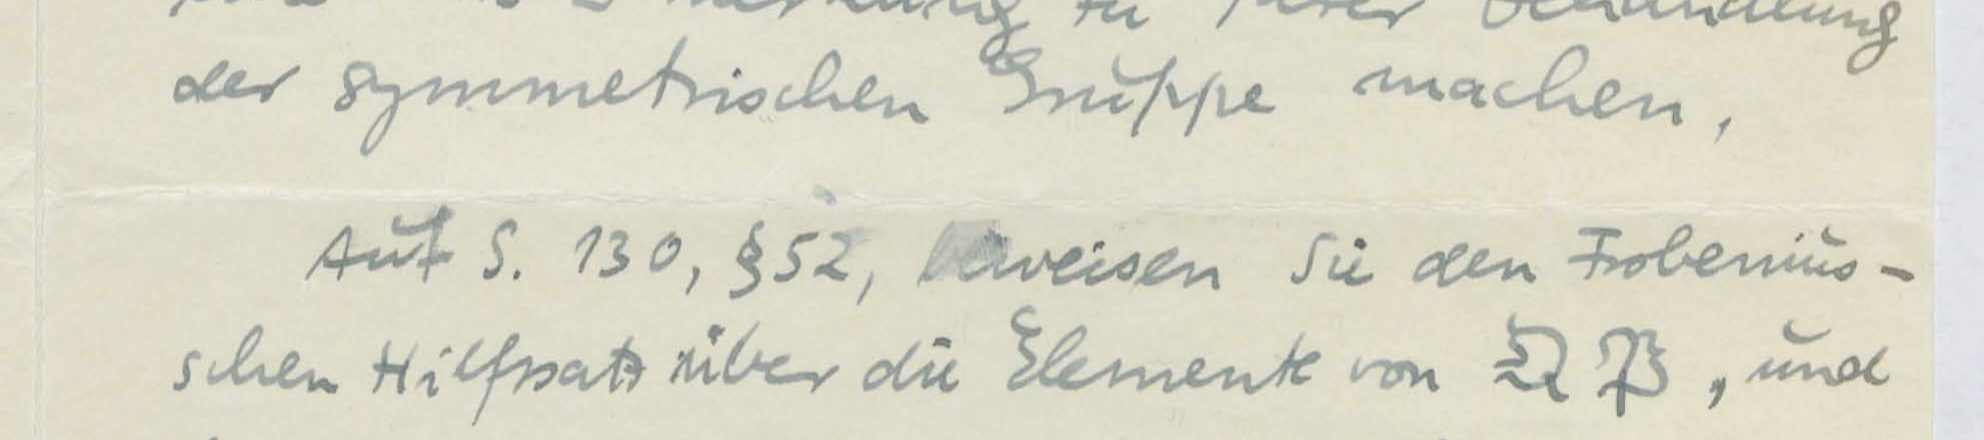 Bemerkung zu Ihrer Behandlung
der symmetrischen Gruppe machen.
Auf S. 130, §52, beweisen Sie den Frobenius-
schen Hilfssatz über die Elemente von 𝔔 𝔓, und